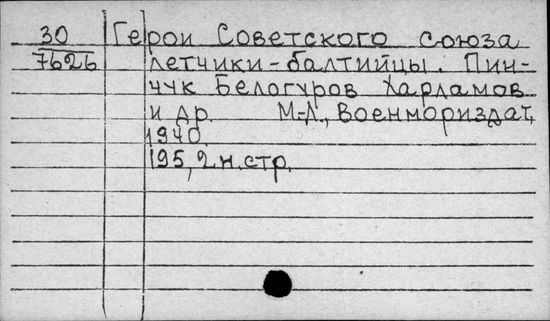 30 Герои Советского Союза
7626 летчики-балтийцы. Пин-
чук Белогуров Харламов
и др. М-Л., Военмориздат,
1940.
195, 2 н. стр.